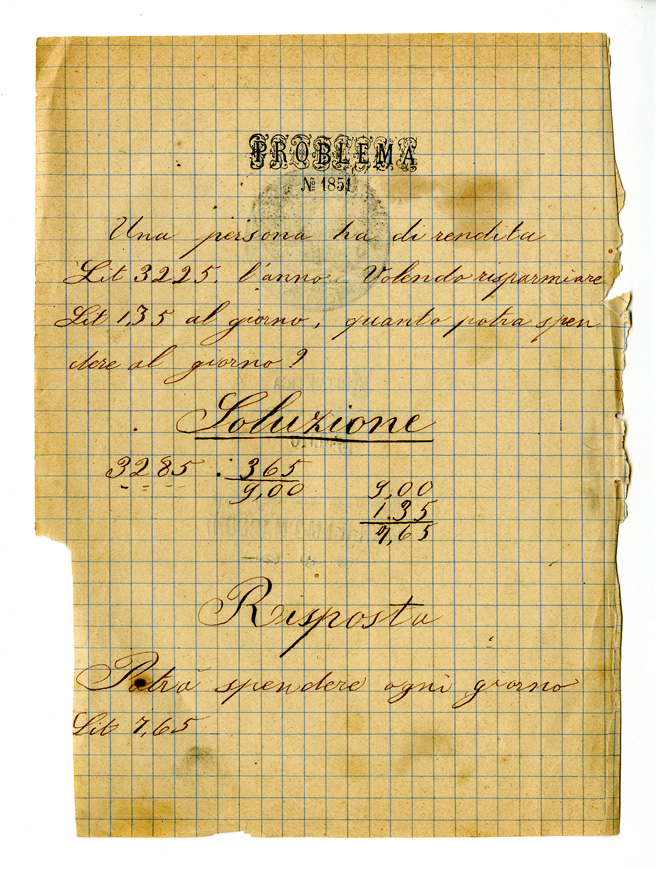 PROBLEMA
№ 1851
Una persona ha di rendita
Lit 3225. l'anno. Volendo risparmiare
Lit 1,35 al giorno, quanto potra spen
dere al giorno?
Soluzione
3285 : 365
9,00 9,00
1.35
7,65
Risposta
Potrà spendere ogni giorno
Lit 7,65